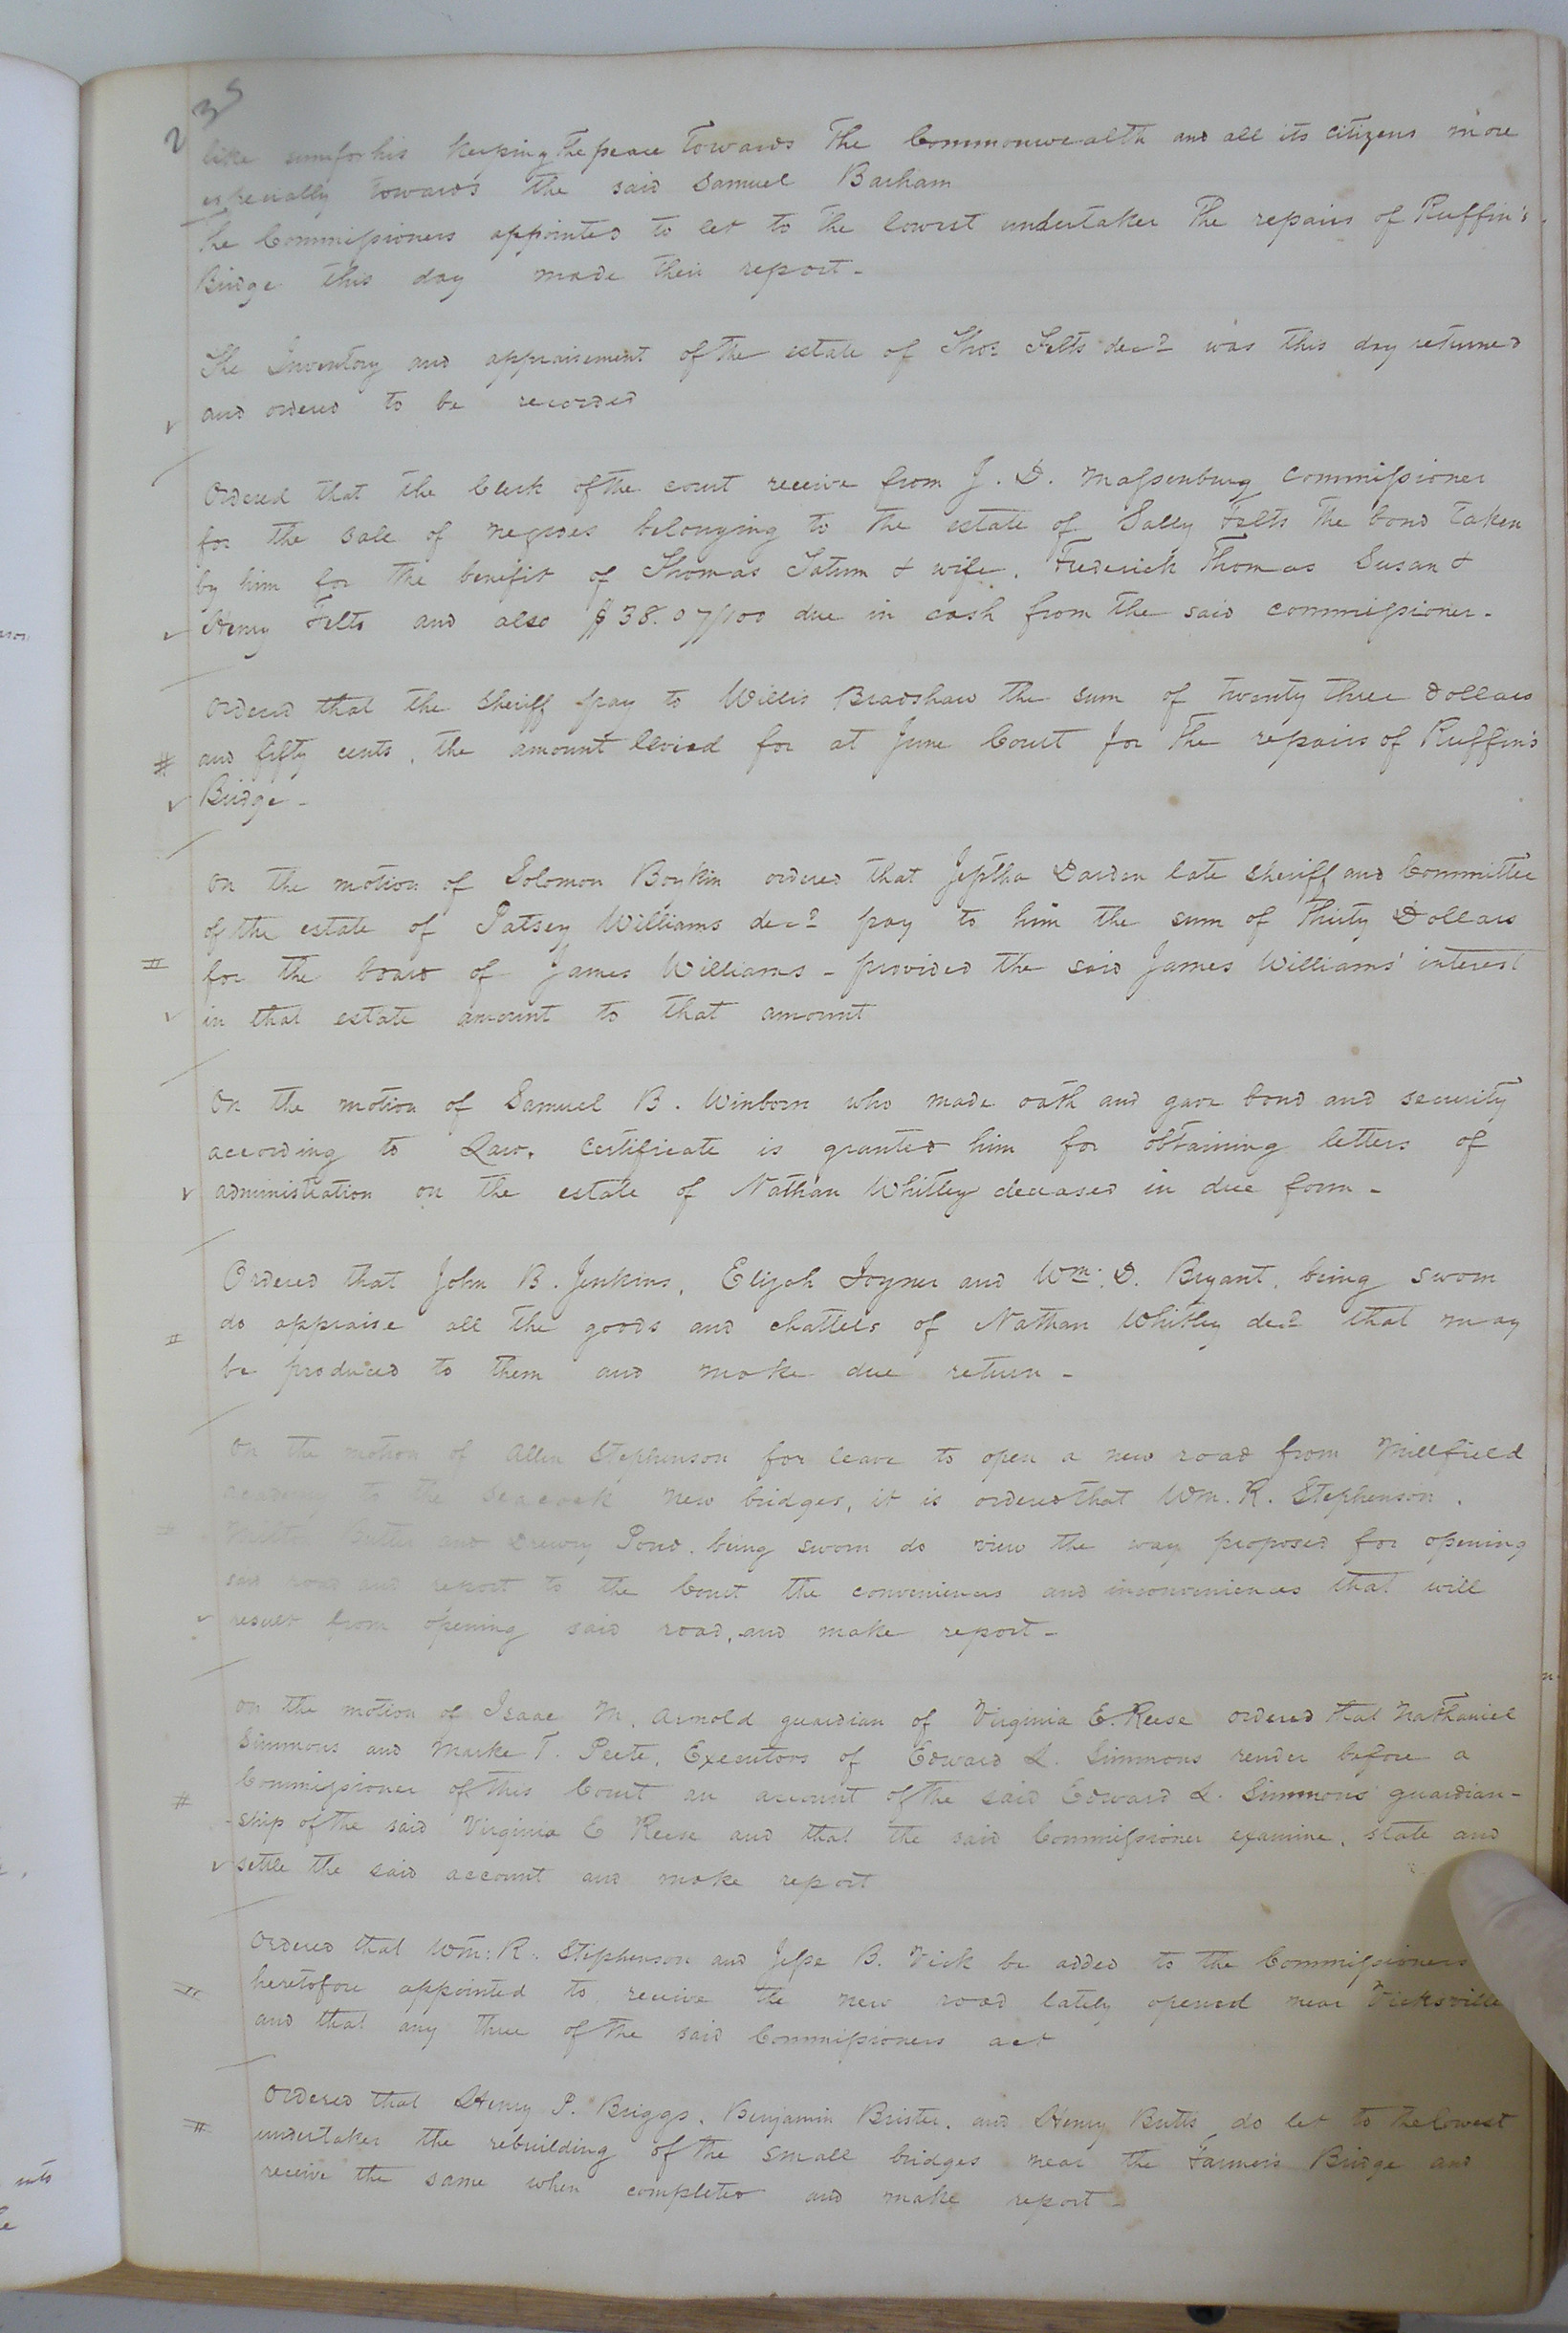 235
like sum for his keeping the peace towards the Commonwealth and all its citizens more
especially towards the said Samuel Barham
The Commissioners appointed to let to the lowest undertaker the repairs of Ruffin's
Bridge this day made their report -
The Inventory and appraisement of the estate of Thos Felts decd was this day returned
and ordered to be recorded
Ordered that the Clerk of the court receive from J. D. Massenburg commissioner
for the sale of negroes belonging to the estate of Sally Felts the bond taken
by him for the benefit of Thomas Tatum & wife, Frederick Thomas Susan &
Henry Felts and also $38.07/100 due in cash from the said commissioner -
Ordered that the Sheriff pay to Willis Bradshaw the sum of twenty three dollars
# and fifty cents, the amount levied for at June Court for the repairs of Ruffin's
Bridge -
On the motion of Solomon Boykin ordered that Jeptha Darden late Sheriff and Committee
of the estate of Patsey Williams decd pay to him the sum of Thirty Dollars
for the board of James Williams - provided the said James Williams' interest
in that estate amount to that amount
On the motion of Samuel B. Winborn who made oath and gave bond and security
according to Law, Certificate is granted him for obtaining letters of
administration on the estate of Nathan Whitley deceased in due form -
Ordered that John B. Jenkins, Elijah Joyner and Wm. D. Bryant, being sworn
do appraise all the goods and chattels of Nathan Whitley decd that may
be produced to them and make due return -
On the motion of Allen Stephenson for leave to open a new road from Millfield
academy to the Seacock new bridges, it is ordered that Wm. R. Stephenson,
Butler and Drewry Pond, being sworn do view the way proposed for opening
said road and report to the Court the conveniences and inconveniences that will
result from opening said road, and make report -
On the motion of Isaac M. Arnold guardian of Virginia E. Reese ordered that Nathaniel
Simmons and Marke T. Peete, Executors of Edward L. Simmons render before a
# Commissioner of this Court an account of the said Edward L. Simmons' guardian-
-ship of the said Virginia E Reese and that the said Commissioner examine, state and
settle the said account and make report
Ordered that Wm: R. Stephenson and Jesse B. Vick be added to the Commissioners
heretofore appointed to receive the new road lately opened near Vicksville
and that any three of the said Commissioners act
# Ordered that Henry P. Briggs, Benjamin Brister, and Henry Butts do let to the lowest
undertaker the rebuilding of the small bridges near the Farmer's Bridge and
receive the same when completed and make report -